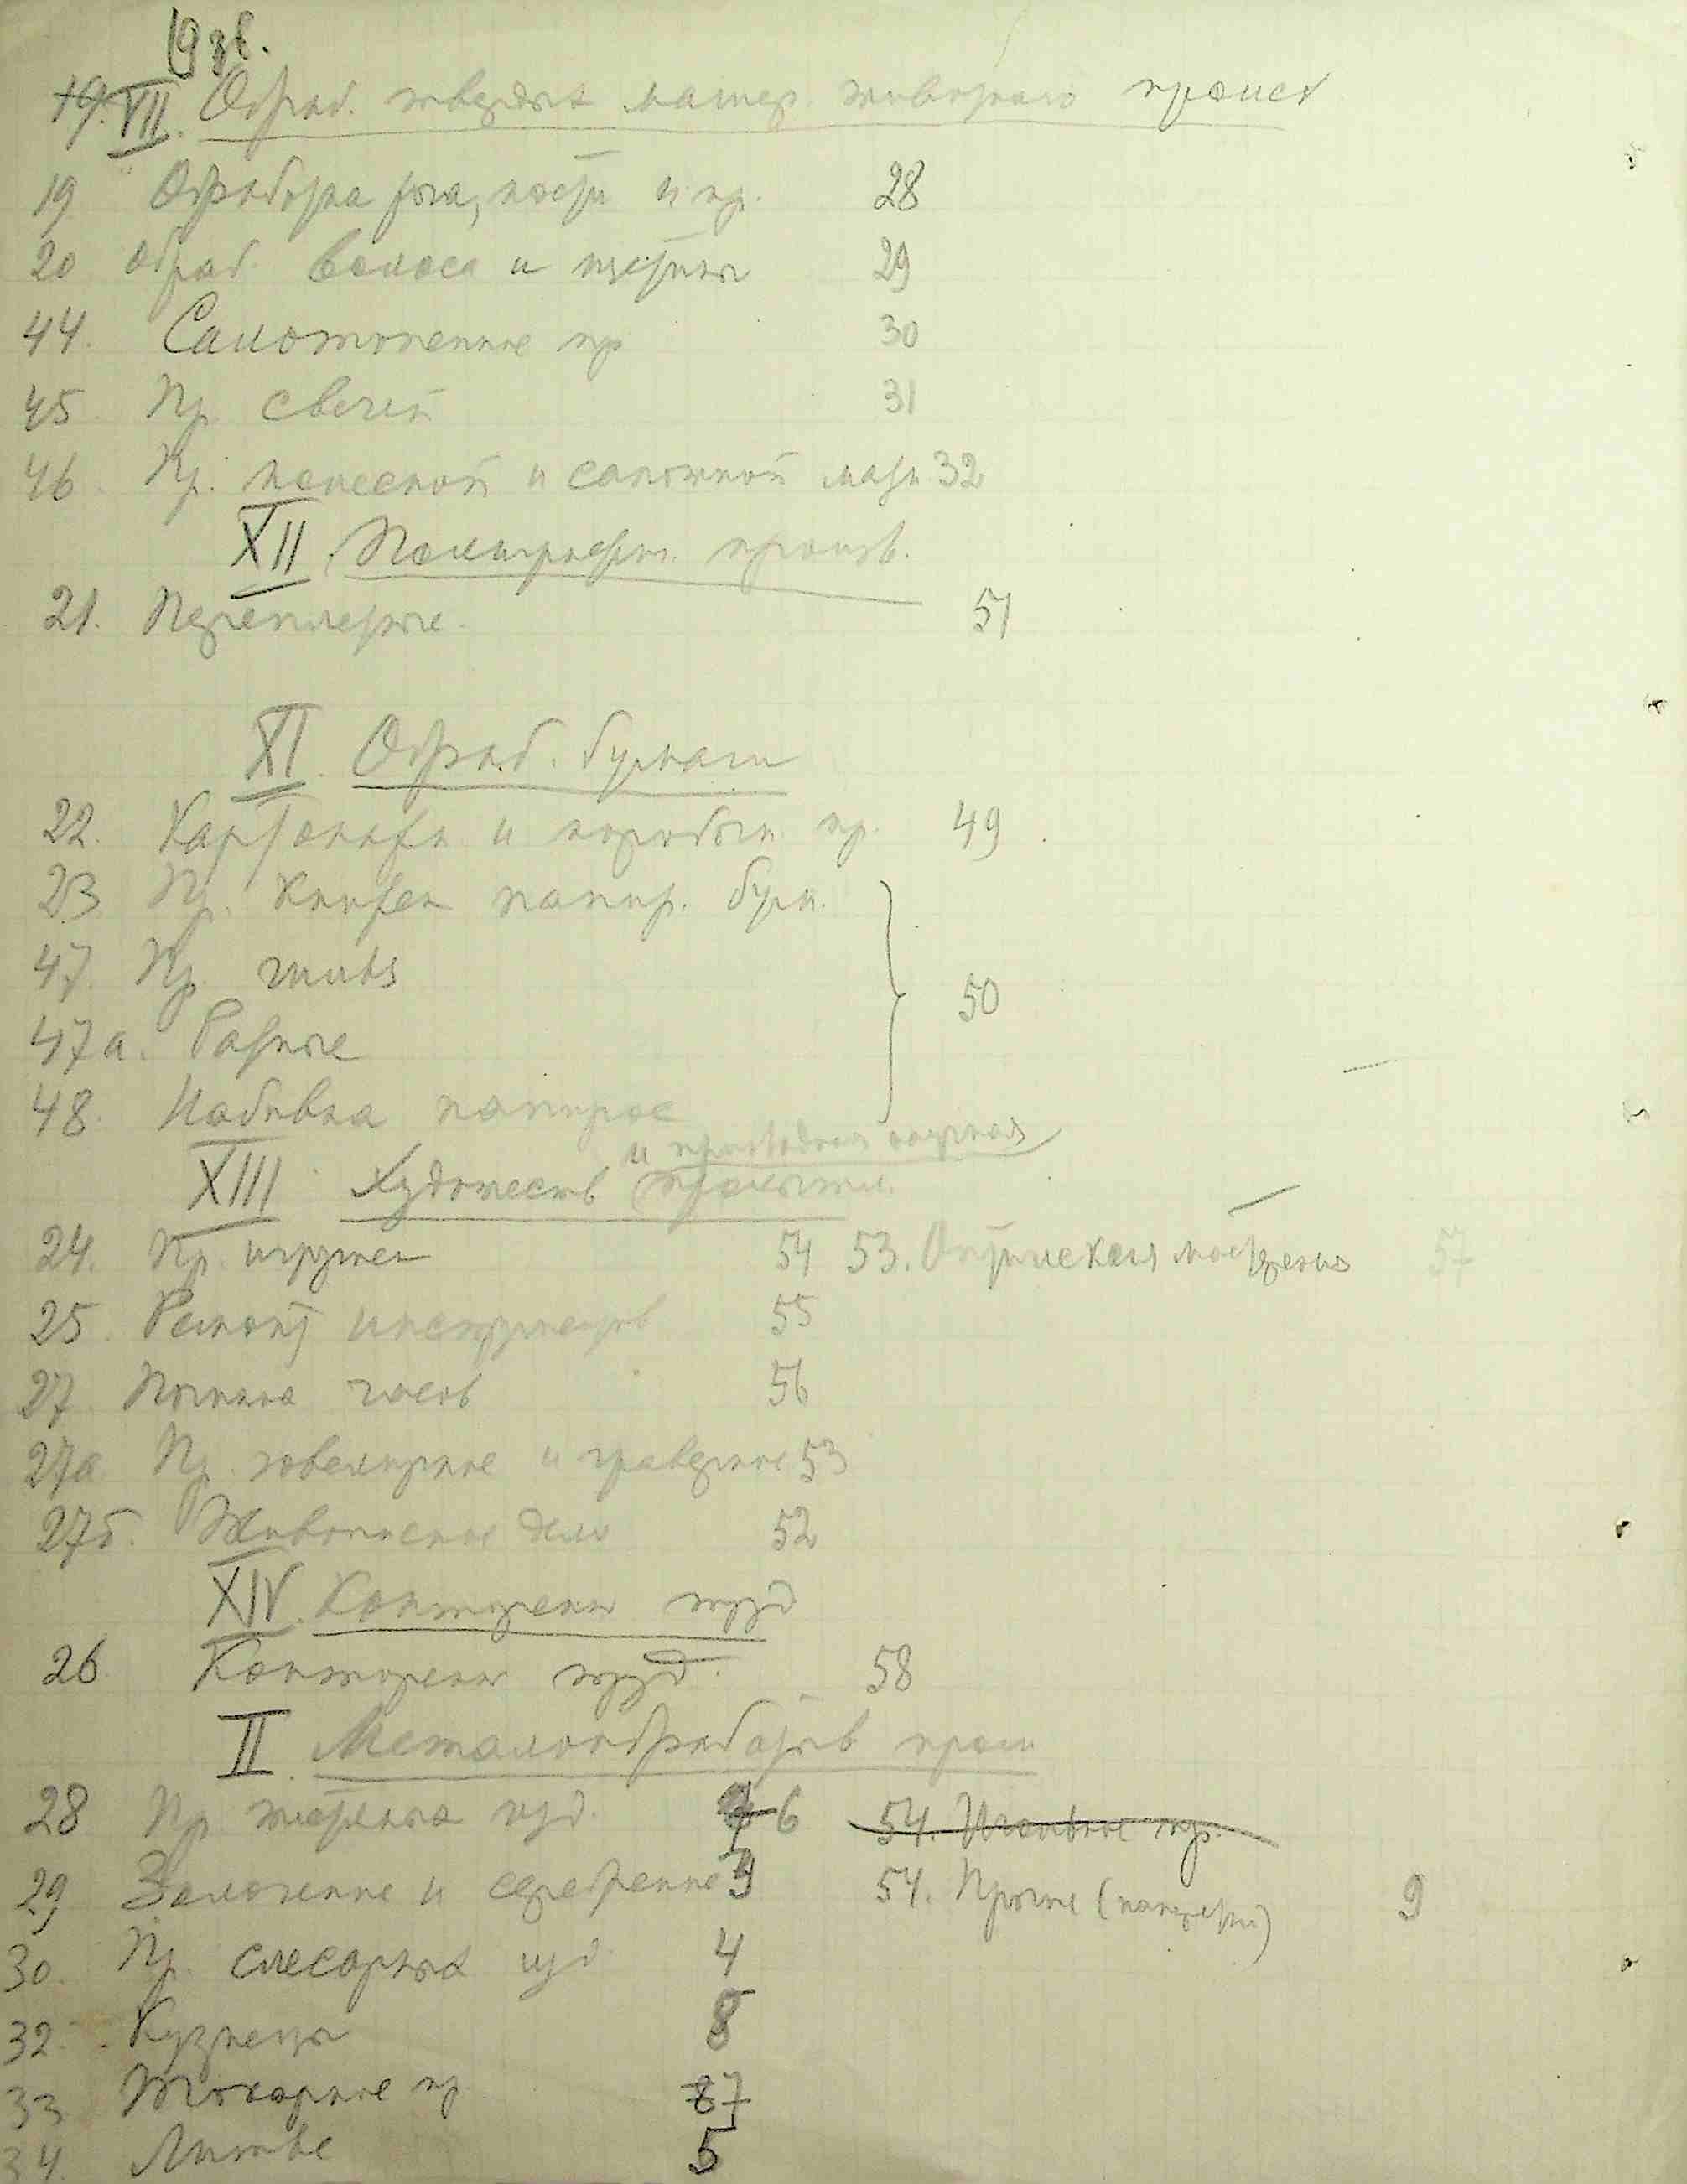 19 экз.
19. VII. Обраб. твердых матер. животного происх
19 Обработка рога, кости и пр. 28
20 Обраб. волоса и щетины 29
44. Салотопенное пр 30
45. Пр. свечей 31
46. Пр. колесной и сапожной мази 32
XII. Полиграфич. произв.
21. Переплетные. 51
XI. Обраб. бумаги
22. Картонажн и коробочн. пр. 49
23 Пр. книжек папир. бум.
47. Пр. гильз 50
47а. Разные
48. Набивка папирос
и прикладная научная
XIII Художеств промышл.
24. Пр. игрушек 54 53. Оптическая мастерская 57
25. Ремонт инструментов 55
27 Починка часов 56
27а Пр. ювелирные и граверные 53
27б. Живописное дело 52
XIV. Конторский труд
26 Конторский труд. 58
II. Металообработыв пром
28 Пр. жестяных изд. 6 54. Игольное пр.
29 Золоченые и серебренные 3 54. Прочие (канцеляр.) 9
30. Пр. слесарных изд 4
32. Кузнецы 8
33 Токарные пр 87
34. Литье 5